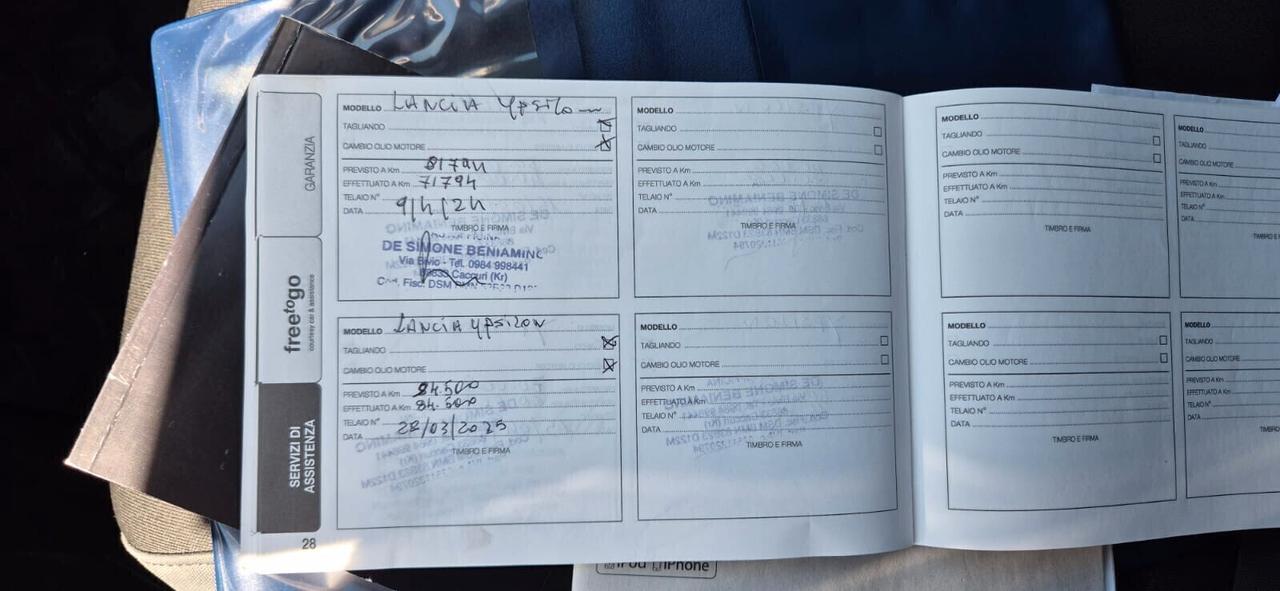 GARANZIA
freetogo
courtesy car & assistance
SERVIZI DI
ASSISTENZA
28
MODELLO LANCIA YPSILON
TAGLIANDO
CAMBIO OLIO MOTORE
PREVISTO A Km
EFFETTUATO A Km 71794
TELAIO N°
DATA 9/4/24
TIMBRO E FIRMA
DE SIMONE BENIAMINO
Via Bivio - Tel. 0984 998441
Caccuri (Kr)
Fisc. DSM
MODELLO LANCIA YPSILON
TAGLIANDO
CAMBIO OLIO MOTORE
PREVISTO A Km 84500
EFFETTUATO A Km 84.500
TELAIO N°
DATA 28/03/2025
TIMBRO E FIRMA
MODELLO
TAGLIANDO
CAMBIO OLIO MOTORE
PREVISTO A Km
EFFETTUATO A Km
TELAIO N°
DATA
TIMBRO E FIRMA
MODELLO
TAGLIANDO
CAMBIO OLIO MOTORE
PREVISTO A Km
EFFETTUATO A Km
TELAIO N°
DATA
TIMBRO E FIRMA
MODELLO
TAGLIANDO
CAMBIO OLIO MOTORE
PREVISTO A Km
EFFETTUATO A Km
TELAIO N°
DATA
TIMBRO E FIRMA
MODELLO
TAGLIANDO
CAMBIO OLIO MOTORE
PREVISTO A Km
EFFETTUATO A Km
TELAIO N°
DATA
TIMBRO E FIRMA
MODELLO
TAGLIANDO
CAMBIO OLIO
PREVISTO A Km
EFFETTUATO A Km
TELAIO N°
DATA
TIMBRO E
MODELLO
TAGLIANDO
CAMBIO OLIO
PREVISTO A Km
EFFETTUATO A Km
TELAIO N°
DATA
iPod iPhone